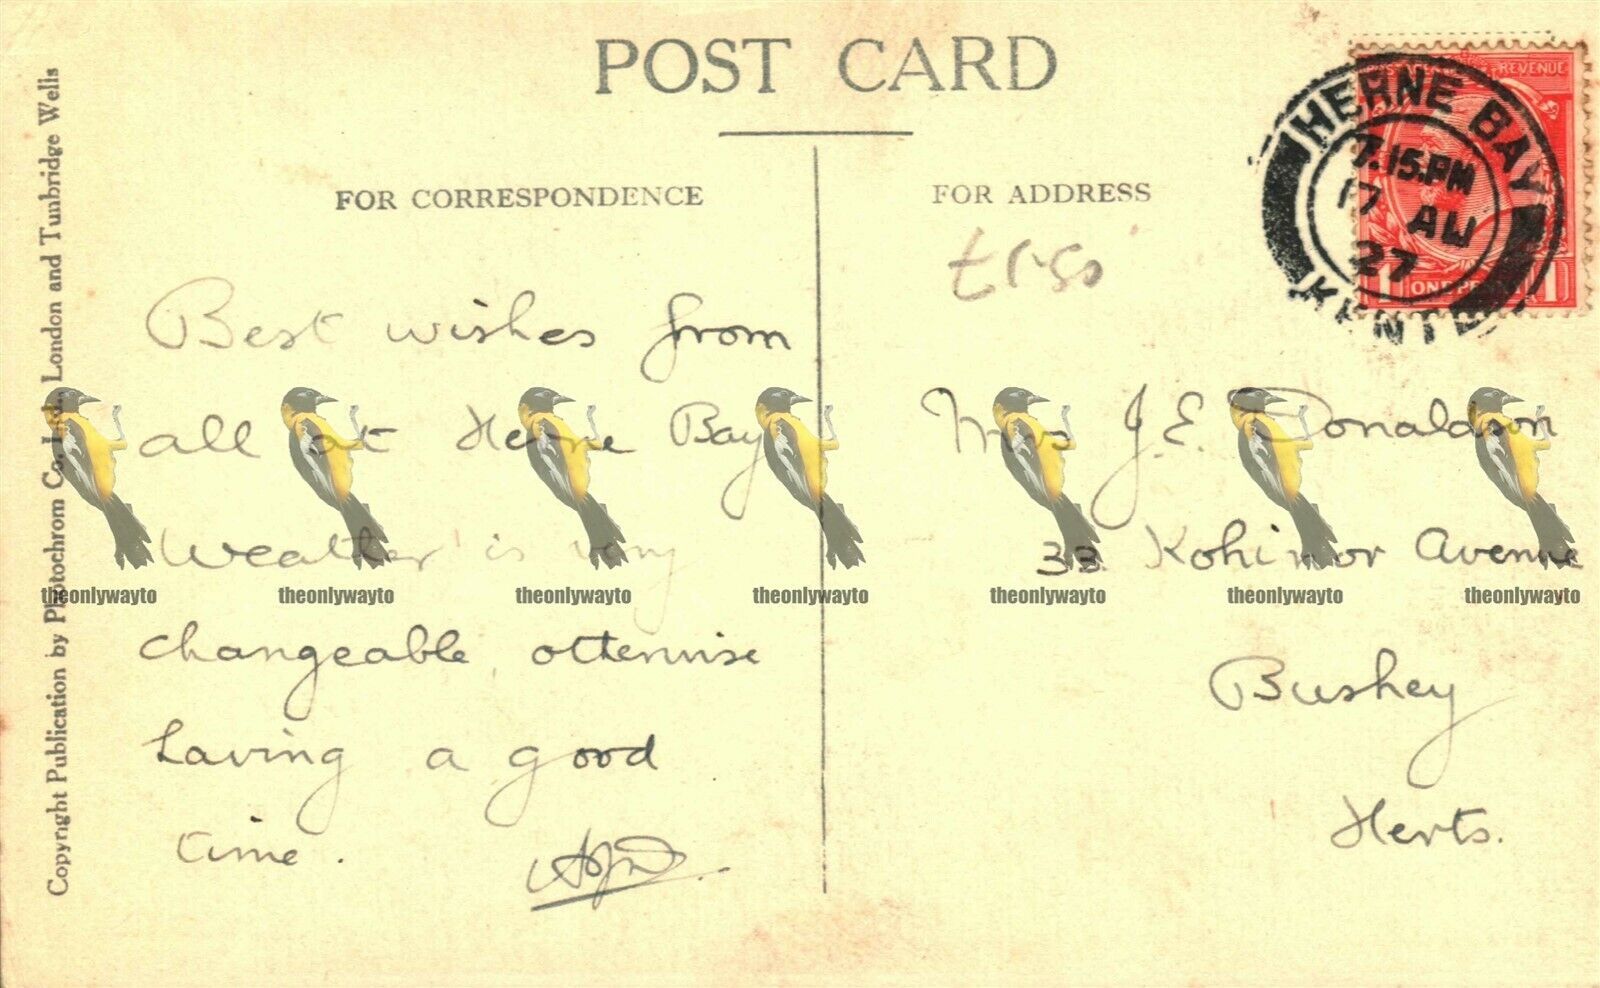 POST CARD
FOR CORRESPONDENCE
Best wishes from
all at Herne Bay
Weather is very
changeable otherwise
having a good
time.
FOR ADDRESS
Mrs J. E. Donaldson
33 Kohinoor Avenue
Bushey
Herts.
HERNE BAY
7.15.PM
17 AU
27
KENT
REVENUE
1 ONE PENNY 1
Copyright Publication by Photochrom Co. Ltd. London and Tunbridge Wells
theonlywayto
theonlywayto
theonlywayto
theonlywayto
theonlywayto
theonlywayto
theonlywayto